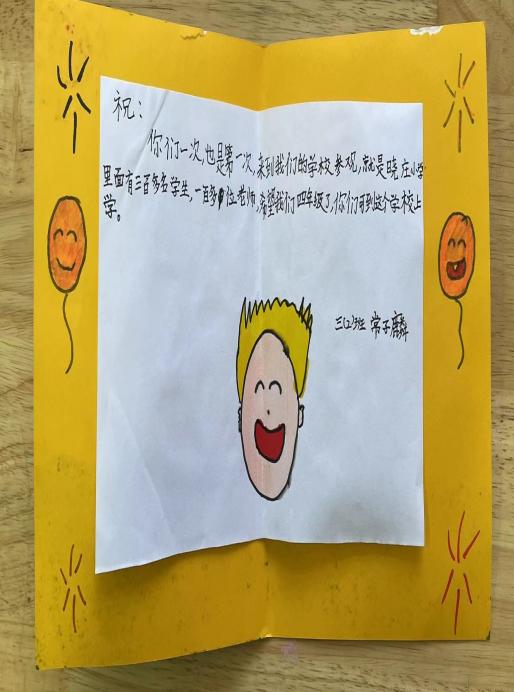 祝：
你们一次，也是第一次，来到我们的学校参观，就是晓庄小学
里面有三百多名学生，一百多位老师，希望我们四年级了，你们可到这个学校上
学。
三(2)班 常子麟